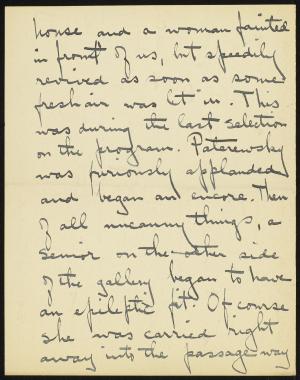 house and a woman fainted
in front of us, but speedily
revived as soon as some
fresh air was let in. This
was during the last selection
on the program. Paterewsky
was furiously applauded
and began an encore. Then
of all uncanny things, a
senior on the other side
of the gallery began to have
an epileptic fit. Of course
she was carried right
away into the passage way